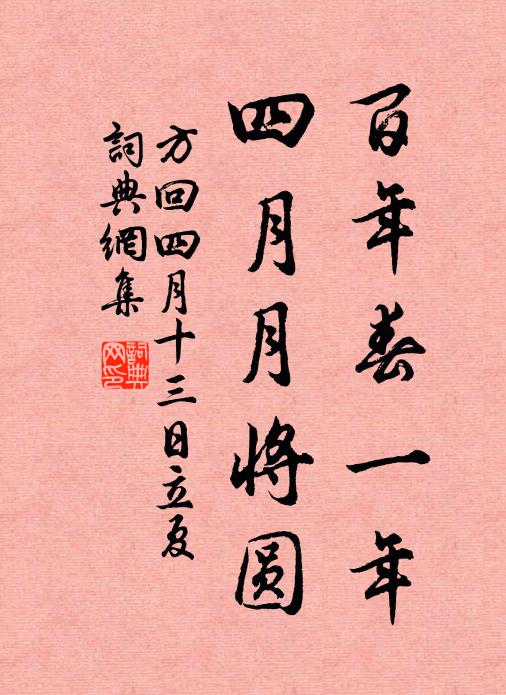 百年春一年
四月月将圆
方回四月十三日立夏
詞典網集
詞典网印